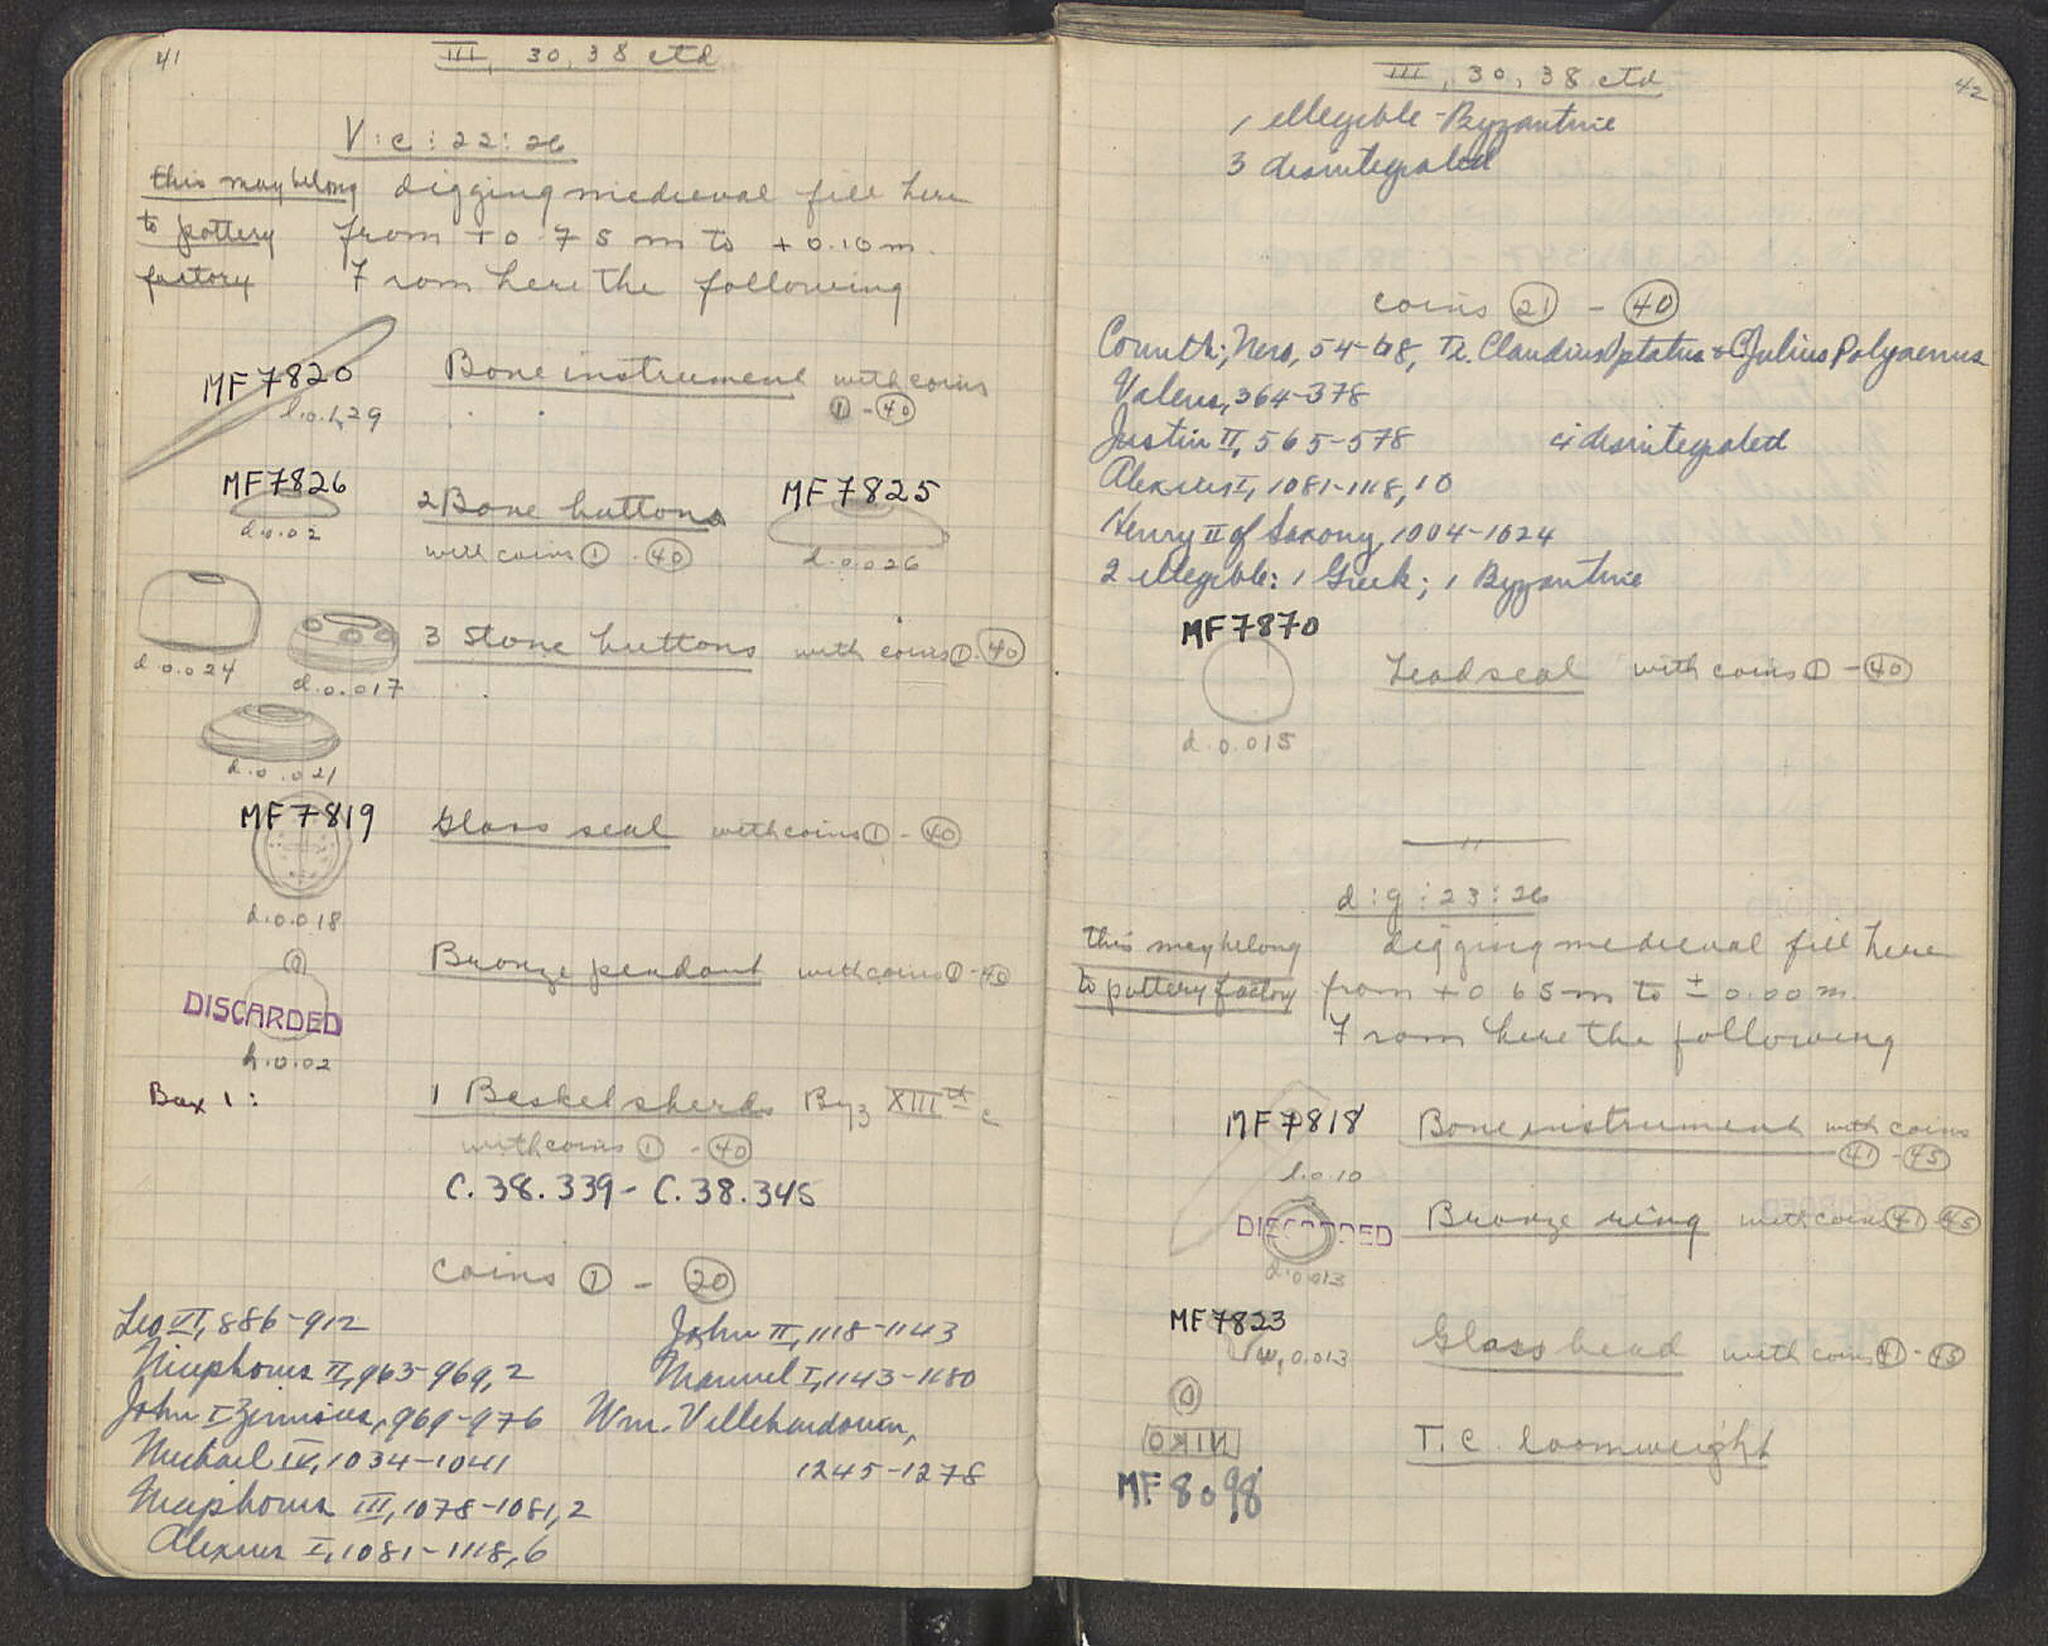 41
III, 30, 38 ctd
V : c : 22 : 26
this may belong
to pottery
factory
digging medieval fill here
from +0.75 m to +0.10 m.
From here the following
MF 7820
l.0.129
Bone instrument with coins
① - ㊵
MF 7826
d.0.02
2 Bone buttons
with coins ① - ㊵
MF 7825
d.0.026
d.0.024
d.0.017
3 Stone buttons with coins ① - ㊵
d.0.021
MF 7819
Glass seal with coins ① - ㊵
d.0.018
Bronze pendant with coins ① - ㊵
DISCARDED
h.0.02
Box 1:
1 Basket sherds Byz XIIIth c
with coins ① - ㊵
C. 38. 339 - C. 38. 345
coins ① - ⑳
Leo VI, 886-912
Nicephorus II, 963-969, 2
John I Zimisces, 969-976
Michael IV, 1034-1041
Nicephorus III, 1078-1081, 2
Alexius I, 1081-1118, 6
John II, 1118-1143
Manuel I, 1143-1180
Wm. Villehardouin,
1245-1278
42
III, 30, 38 ctd
1 illegible - Byzantine
3 disintegrated
coins ㉑ - ㊵
Corinth; Nero, 54-68, Ti. Claudius Optatus & C. Julius Polyaenus
Valens, 364-378
Justin II, 565-578 4 disintegrated
Alexius I, 1081-1118, 10
Henry II of Saxony, 1004-1024
2 illegible: 1 Greek; 1 Byzantine
MF 7870
Lead seal with coins ① - ㊵
d.0.015
d : g : 23 : 26
this may belong
to pottery factory
digging medieval fill here
from +0.65 m to ±0.00 m.
From here the following
MF 7818
l.0.10
Bone instrument with coins
㊶ - ㊺
DISCARDED
d.0.013
Bronze ring with coins ㊶ - ㊺
MF 7823
W, 0.013
Glass bead with coins ㊶ - ㊺
NIKO
T.C. loomweight
MF 8098